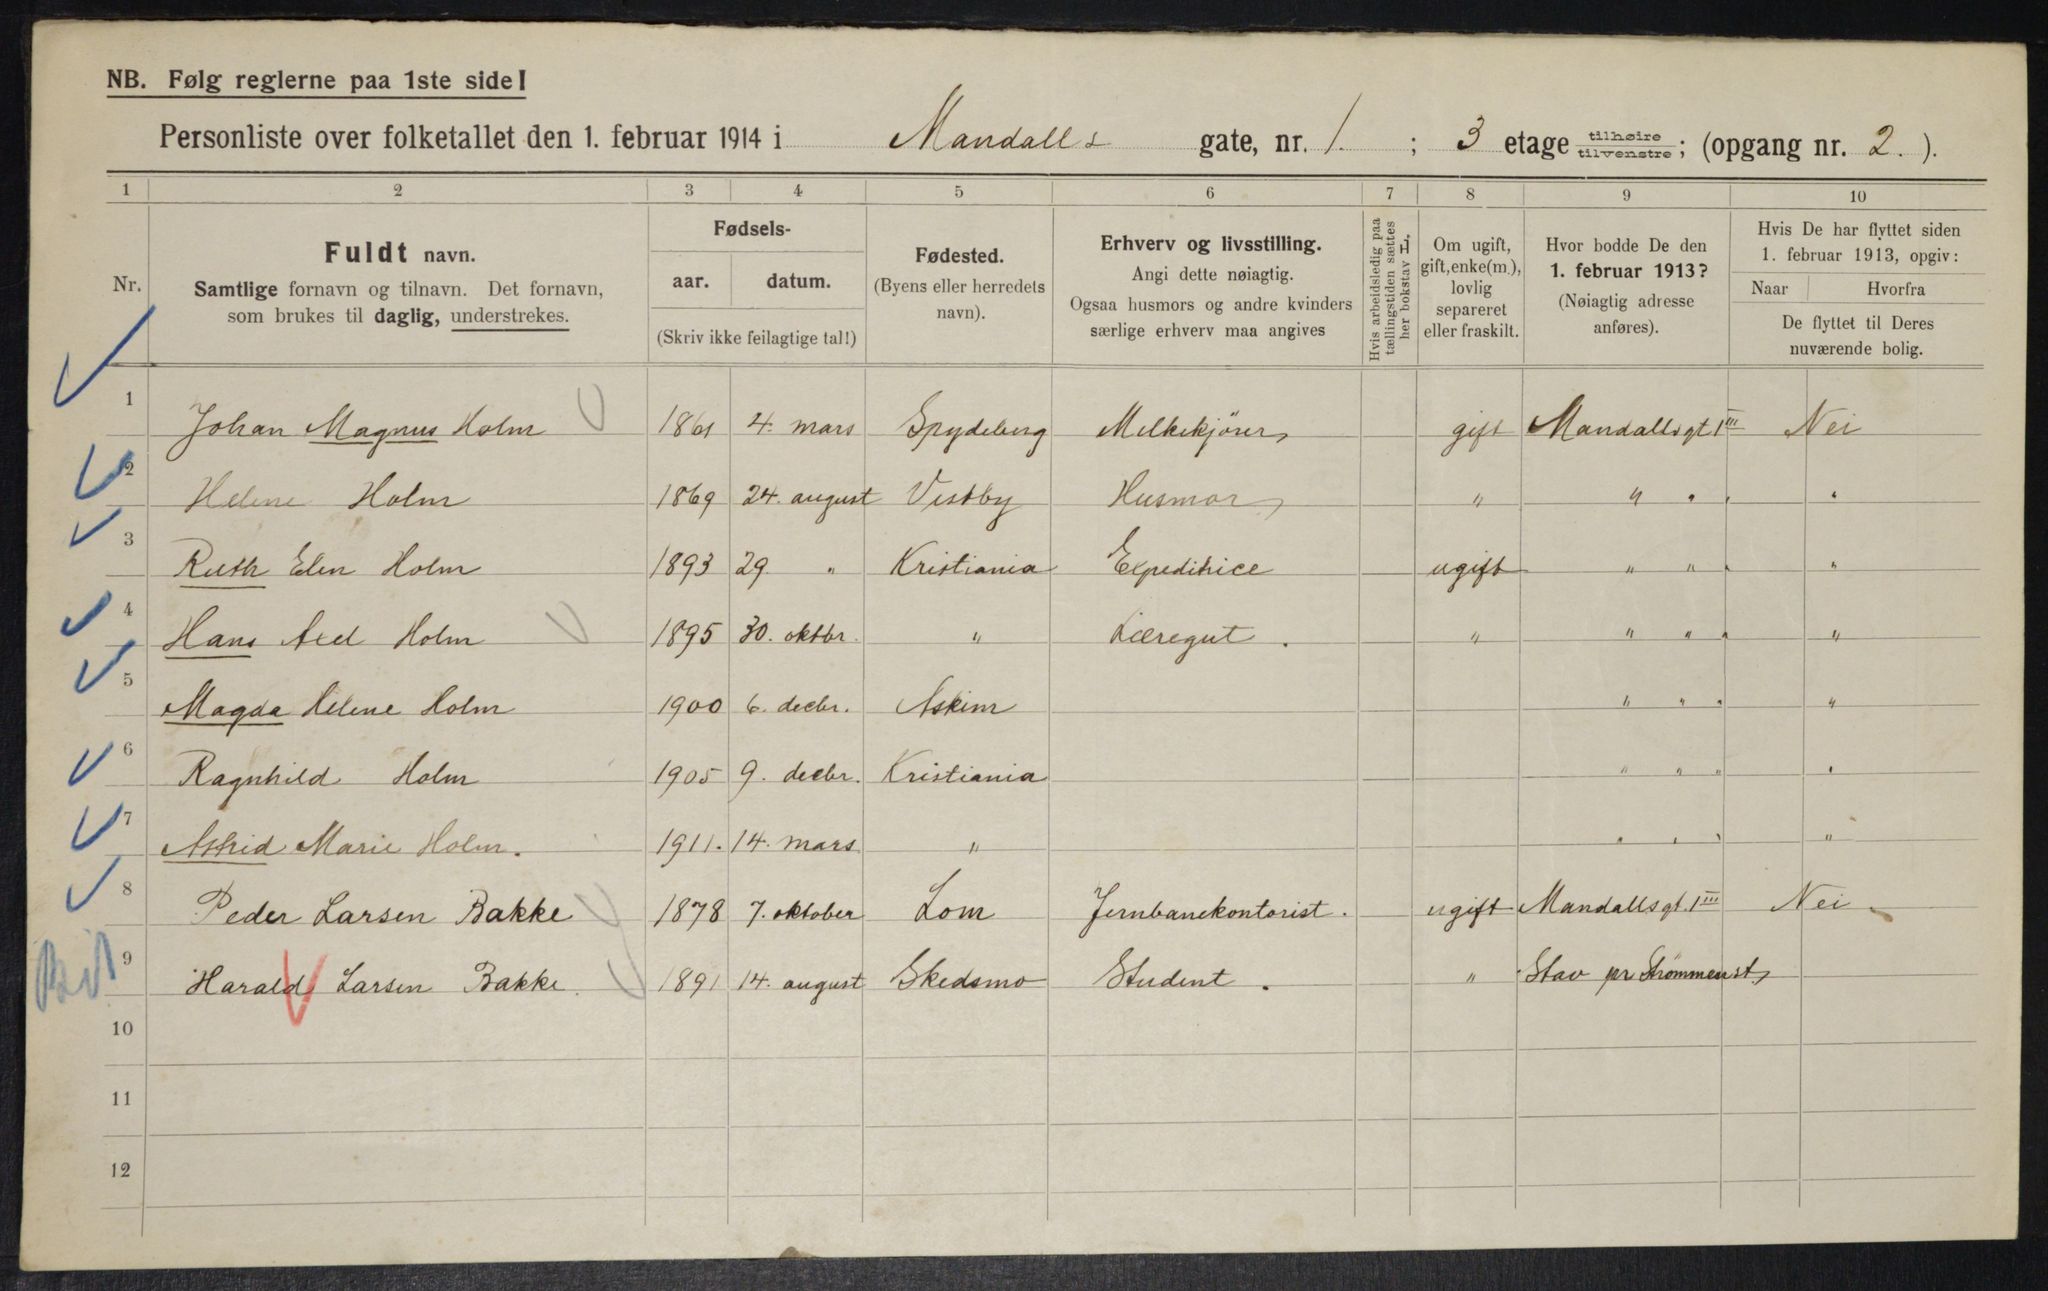 NB. Følg reglerne paa 1ste side!
Personliste over folketallet den 1. februar 1914 i Mandalls gate, nr. 1. ; 3 etage tilhøire tilvenstre; (opgang nr. 2.).
1 2 3 4 5 6 7 8 9 10
Nr.
Fuldt navn.
Samtlige fornavn og tilnavn. Det fornavn,
som brukes til daglig, understrekes.
Fødsels-
aar. datum.
(Skriv ikke feilagtige tal!)
Fødested.
(Byens eller herredets
navn).
Erhverv og livsstilling.
Angi dette nøiagtig.
Ogsaa husmors og andre kvinders
særlige erhverv maa angives
Hvis arbeidsledig paa
tællingstiden sættes
her bokstav L.
Om ugift,
gift, enke(m.),
lovlig
separeret
eller fraskilt.
Hvor bodde De den
1. februar 1913?
(Nøiagtig adresse
anføres).
Hvis De har flyttet siden
1. februar 1913, opgiv:
Naar Hvorfra
De flyttet til Deres
nuværende bolig.
1 Johan Magnus Holm 1861 4. mars Spydeberg Melkekjører gift Mandallsgt 1 III Nei
2 Helene Holm 1869 24. august Vestby Husmor " " " " "
3 Ruth Elen Holm 1893 29 " Kristiania Expeditrice ugift " " " "
4 Hans Axel Holm 1895 30. oktbr. " Læregut. " " " " "
5 Magda Helene Holm 1900 6. decbr. Askim " " " "
6 Ragnhild Holm 1905 9. decbr. Kristiania " " " "
7 Astrid Marie Holm. 1911. 14. mars " " " " "
8 Peder Larsen Bakke 1878 7. oktober Lom Jernbanekontorist. ugift Mandallsgt. 1 III Nei
9 Harald Larsen Bakke. 1891 14. august Skedsmo Student. " Stav pr Strømmen st.
10
11
12